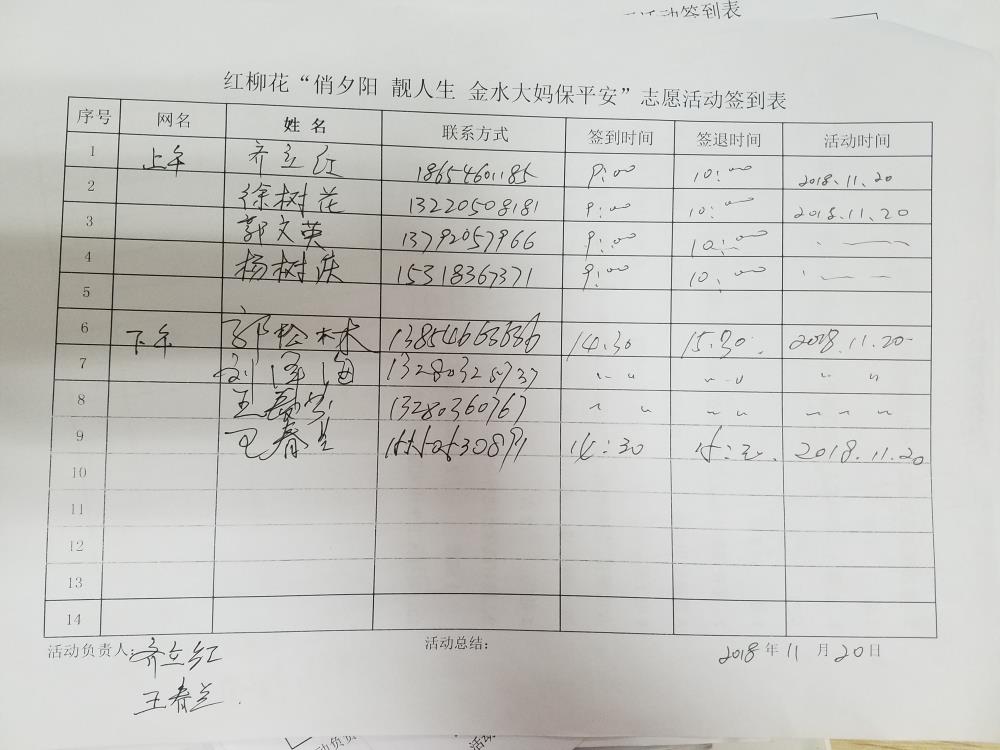 活动签到表
红柳花“俏夕阳 靓人生 金水大妈保平安”志愿活动签到表
序号 网名 姓名 联系方式 签到时间 签退时间 活动时间
1 上午 齐立红 18654601185 9:00 10:00 2018.11.20
2 徐树花 13220508181 9:00 10:00 2018.11.20
3 郭文英 13792057966 9:00 10:00
4 杨树庆 15318367371 9:00 10:00
5
6 下午 郭松林 14:30 15:30. 2018.11.20
7 刘泽海 〃 〃 〃
8 13280360767 〃 〃 〃
9 王春兰 14:30 15:30. 2018.11.20
10
11
12
13
14
活动负责人:齐立红 活动总结: 2018年11月20日
王春兰.